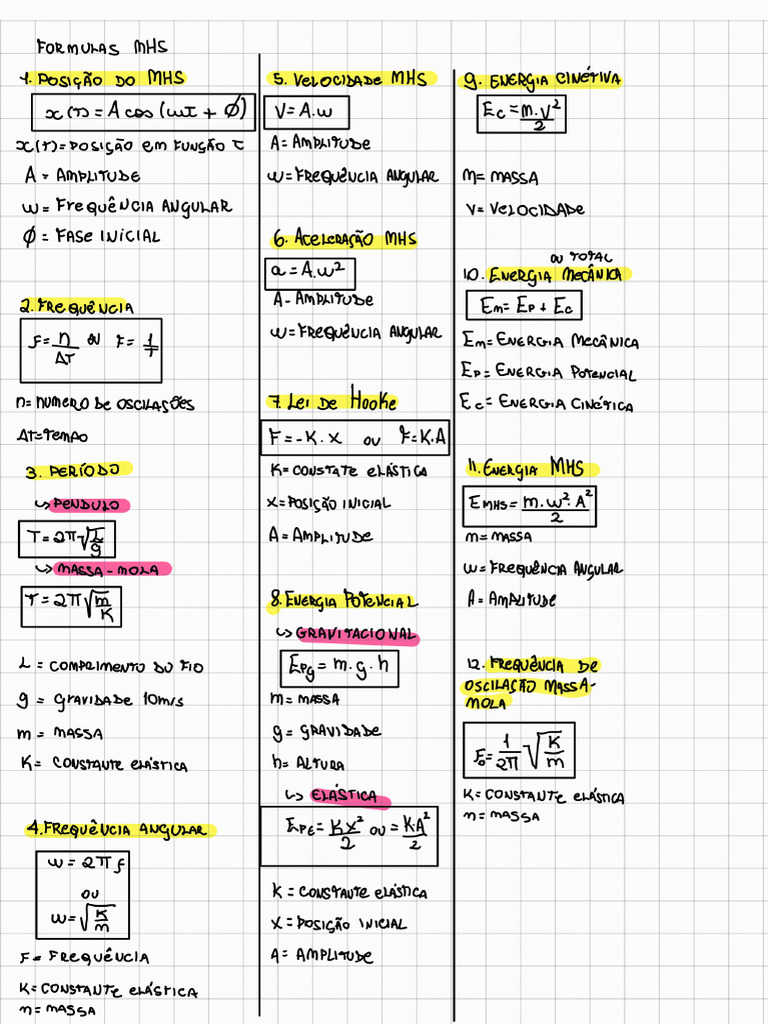 FORMULAS MHS
1. POSIÇÃO DO MHS
x(t) = A cos (wt + Ø)
x(t) = POSIÇÃO EM FUNÇÃO T
A = AMPLITUDE
w = FREQUÊNCIA ANGULAR
Ø = FASE INICIAL
2. FREQUÊNCIA
f = n/ΔT ou F = 1/T
n = NUMERO DE OSCILAÇÕES
ΔT = TEMPO
3. PERÍODO
↳ PENDULO
T = 2π√(L/g)
↳ MASSA-MOLA
T = 2π√(m/K)
L = COMPRIMENTO DO FIO
g = GRAVIDADE 10m/s
m = MASSA
K = CONSTANTE ELÁSTICA
4. FREQUÊNCIA ANGULAR
w = 2πf
ou
w = √(K/m)
F = FREQUÊNCIA
K = CONSTANTE ELÁSTICA
m = MASSA
5. VELOCIDADE MHS
V = A.w
A = AMPLITUDE
w = FREQUÊNCIA ANGULAR
6. ACELERAÇÃO MHS
a = A.w²
A - AMPLITUDE
w = FREQUÊNCIA ANGULAR
7. LEI DE HOOKE
F = -K.x ou F = K.A
K = CONSTATE ELÁSTICA
X = POSIÇÃO INICIAL
A = AMPLITUDE
8. ENERGIA POTENCIAL
↳ GRAVITACIONAL
Epg = m.g.h
m = MASSA
g = GRAVIDADE
h = ALTURA
↳ ELÁSTICA
EPE = Kx²/2 ou = K.A²/2
K = CONSTANTE ELÁSTICA
X = POSIÇÃO INICIAL
A = AMPLITUDE
9. ENERGIA CINÉTIVA
Ec = m.v²/2
M = MASSA
V = VELOCIDADE
OU TOTAL
10. ENERGIA MECÂNICA
Em = Ep + Ec
Em = ENERGIA MECÂNICA
Ep = ENERGIA POTENCIAL
Ec = ENERGIA CINÉTICA
11. ENERGIA MHS
EMHS = m.w².A²/2
m = MASSA
w = FREQUÊNCIA ANGULAR
A = AMPLITUDE
12. FREQUÊNCIA DE
OSCILAÇÃO MASSA-
MOLA
Fo = 1/2π √(K/m)
K = CONSTANTE ELÁSTICA
m = MASSA